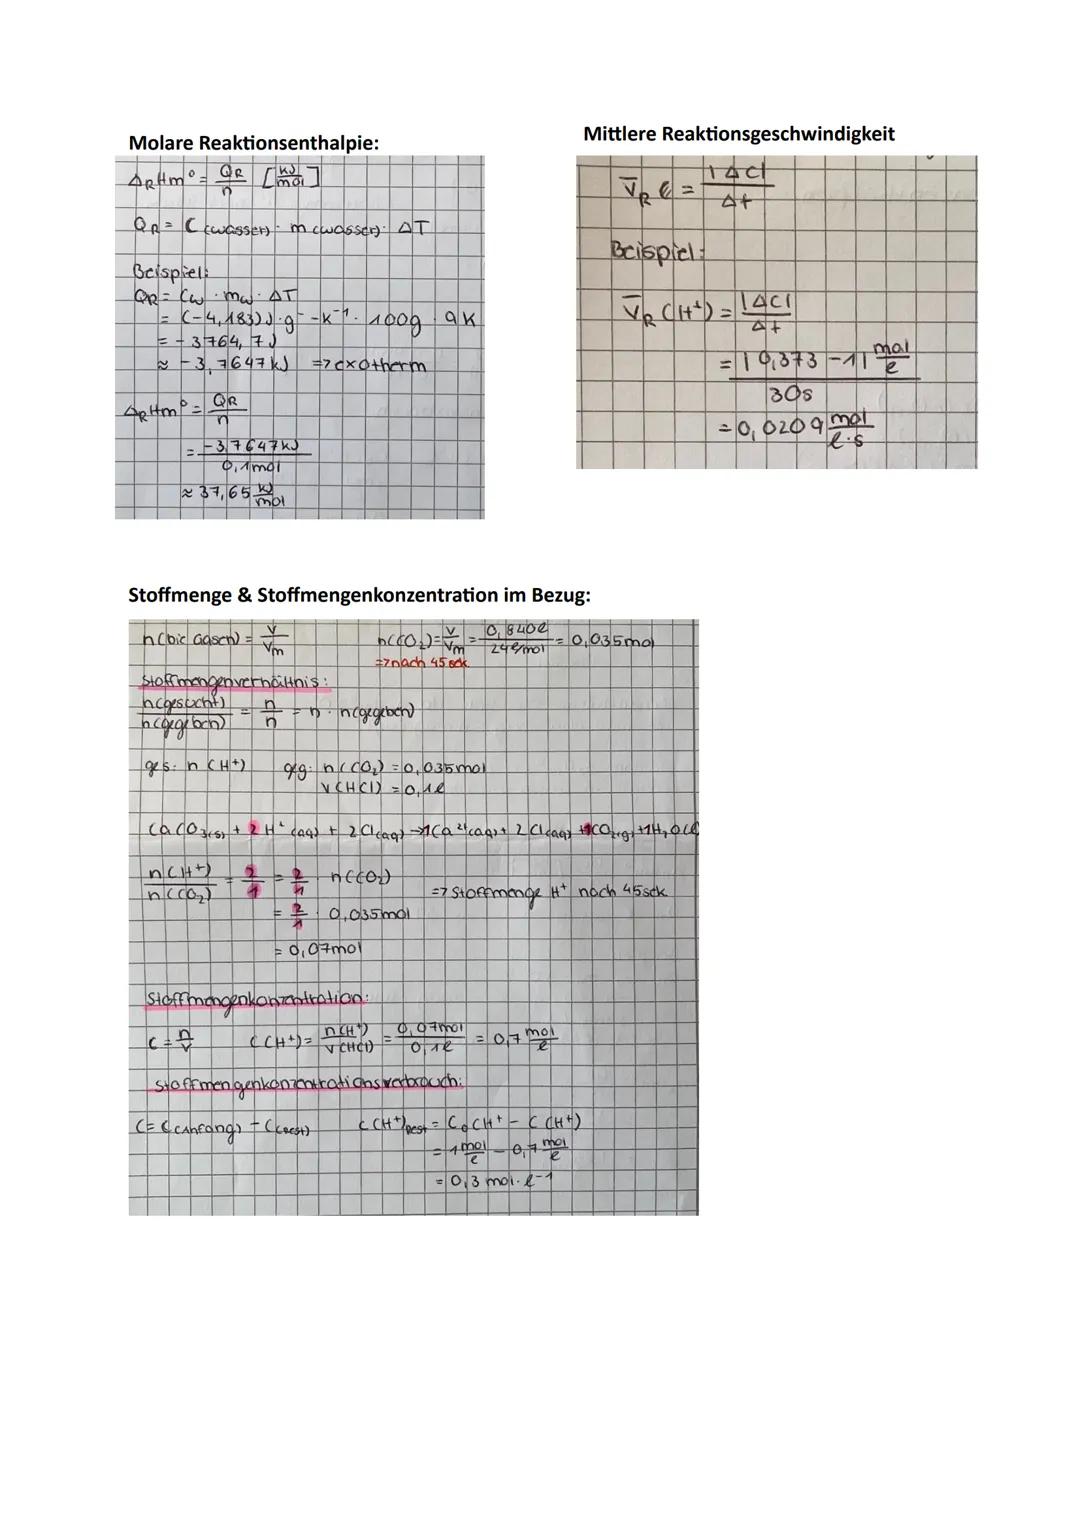 Molare Reaktionsenthalpie:
ΔRHm° = QR/n [kJ/mol]
QR = C (wasser) · m (wasser) · ΔT
Beispiel:
QR = Cw · mw · ΔT
= (-4,183) J · g⁻ - K⁻¹ · 100g · 9K
= -3764,7 J
≈ -3,7647 kJ => exotherm
ΔRHm° = QR/n
= -3,7647 kJ / 0,1 mol
≈ 37,65 kJ/mol
Mittlere Reaktionsgeschwindigkeit
V̅R = |ΔC| / Δt
Beispiel:
V̅R (H⁺) = |ΔC| / Δt
= |0,373 - 1| mol/l / 30s
= 0,0209 mol/l·s
Stoffmenge & Stoffmengenkonzentration im Bezug:
n (bei Gasen) = V/Vm
n(CO₂) = V/Vm = 0,840l / 24l/mol = 0,035 mol
=> nach 45 sek
Stoffmengenverhältnis:
n(gesucht) / n(gegeben) = n/n = n · n(gegeben)
ges: n (H⁺) geg: n (CO₂) = 0,035 mol
V (HCl) = 0,1l
CaCO₃(s) + 2 H⁺ (aq) + 2 Cl(aq) → 1Ca²⁺(aq) + 2 Cl(aq) + 1CO₂(g) + 1H₂O(l
n(H⁺) / n(CO₂) = 2/1 = 2/1 · n(CO₂)
=> Stoffmenge H⁺ nach 45sek
= 2/1 · 0,035 mol
= 0,07 mol
Stoffmengenkonzentration:
C = n/V C(H⁺) = n(H⁺) / V(HCl) = 0,07 mol / 0,1l = 0,7 mol/l
Stoffmengenkonzentrationsverbrauch:
C = C(Anfang) - C(Rest) C(H⁺)Rest = C₀(H⁺ - C (H⁺)
= 1 mol/l - 0,7 mol/l
= 0,3 mol · l-1